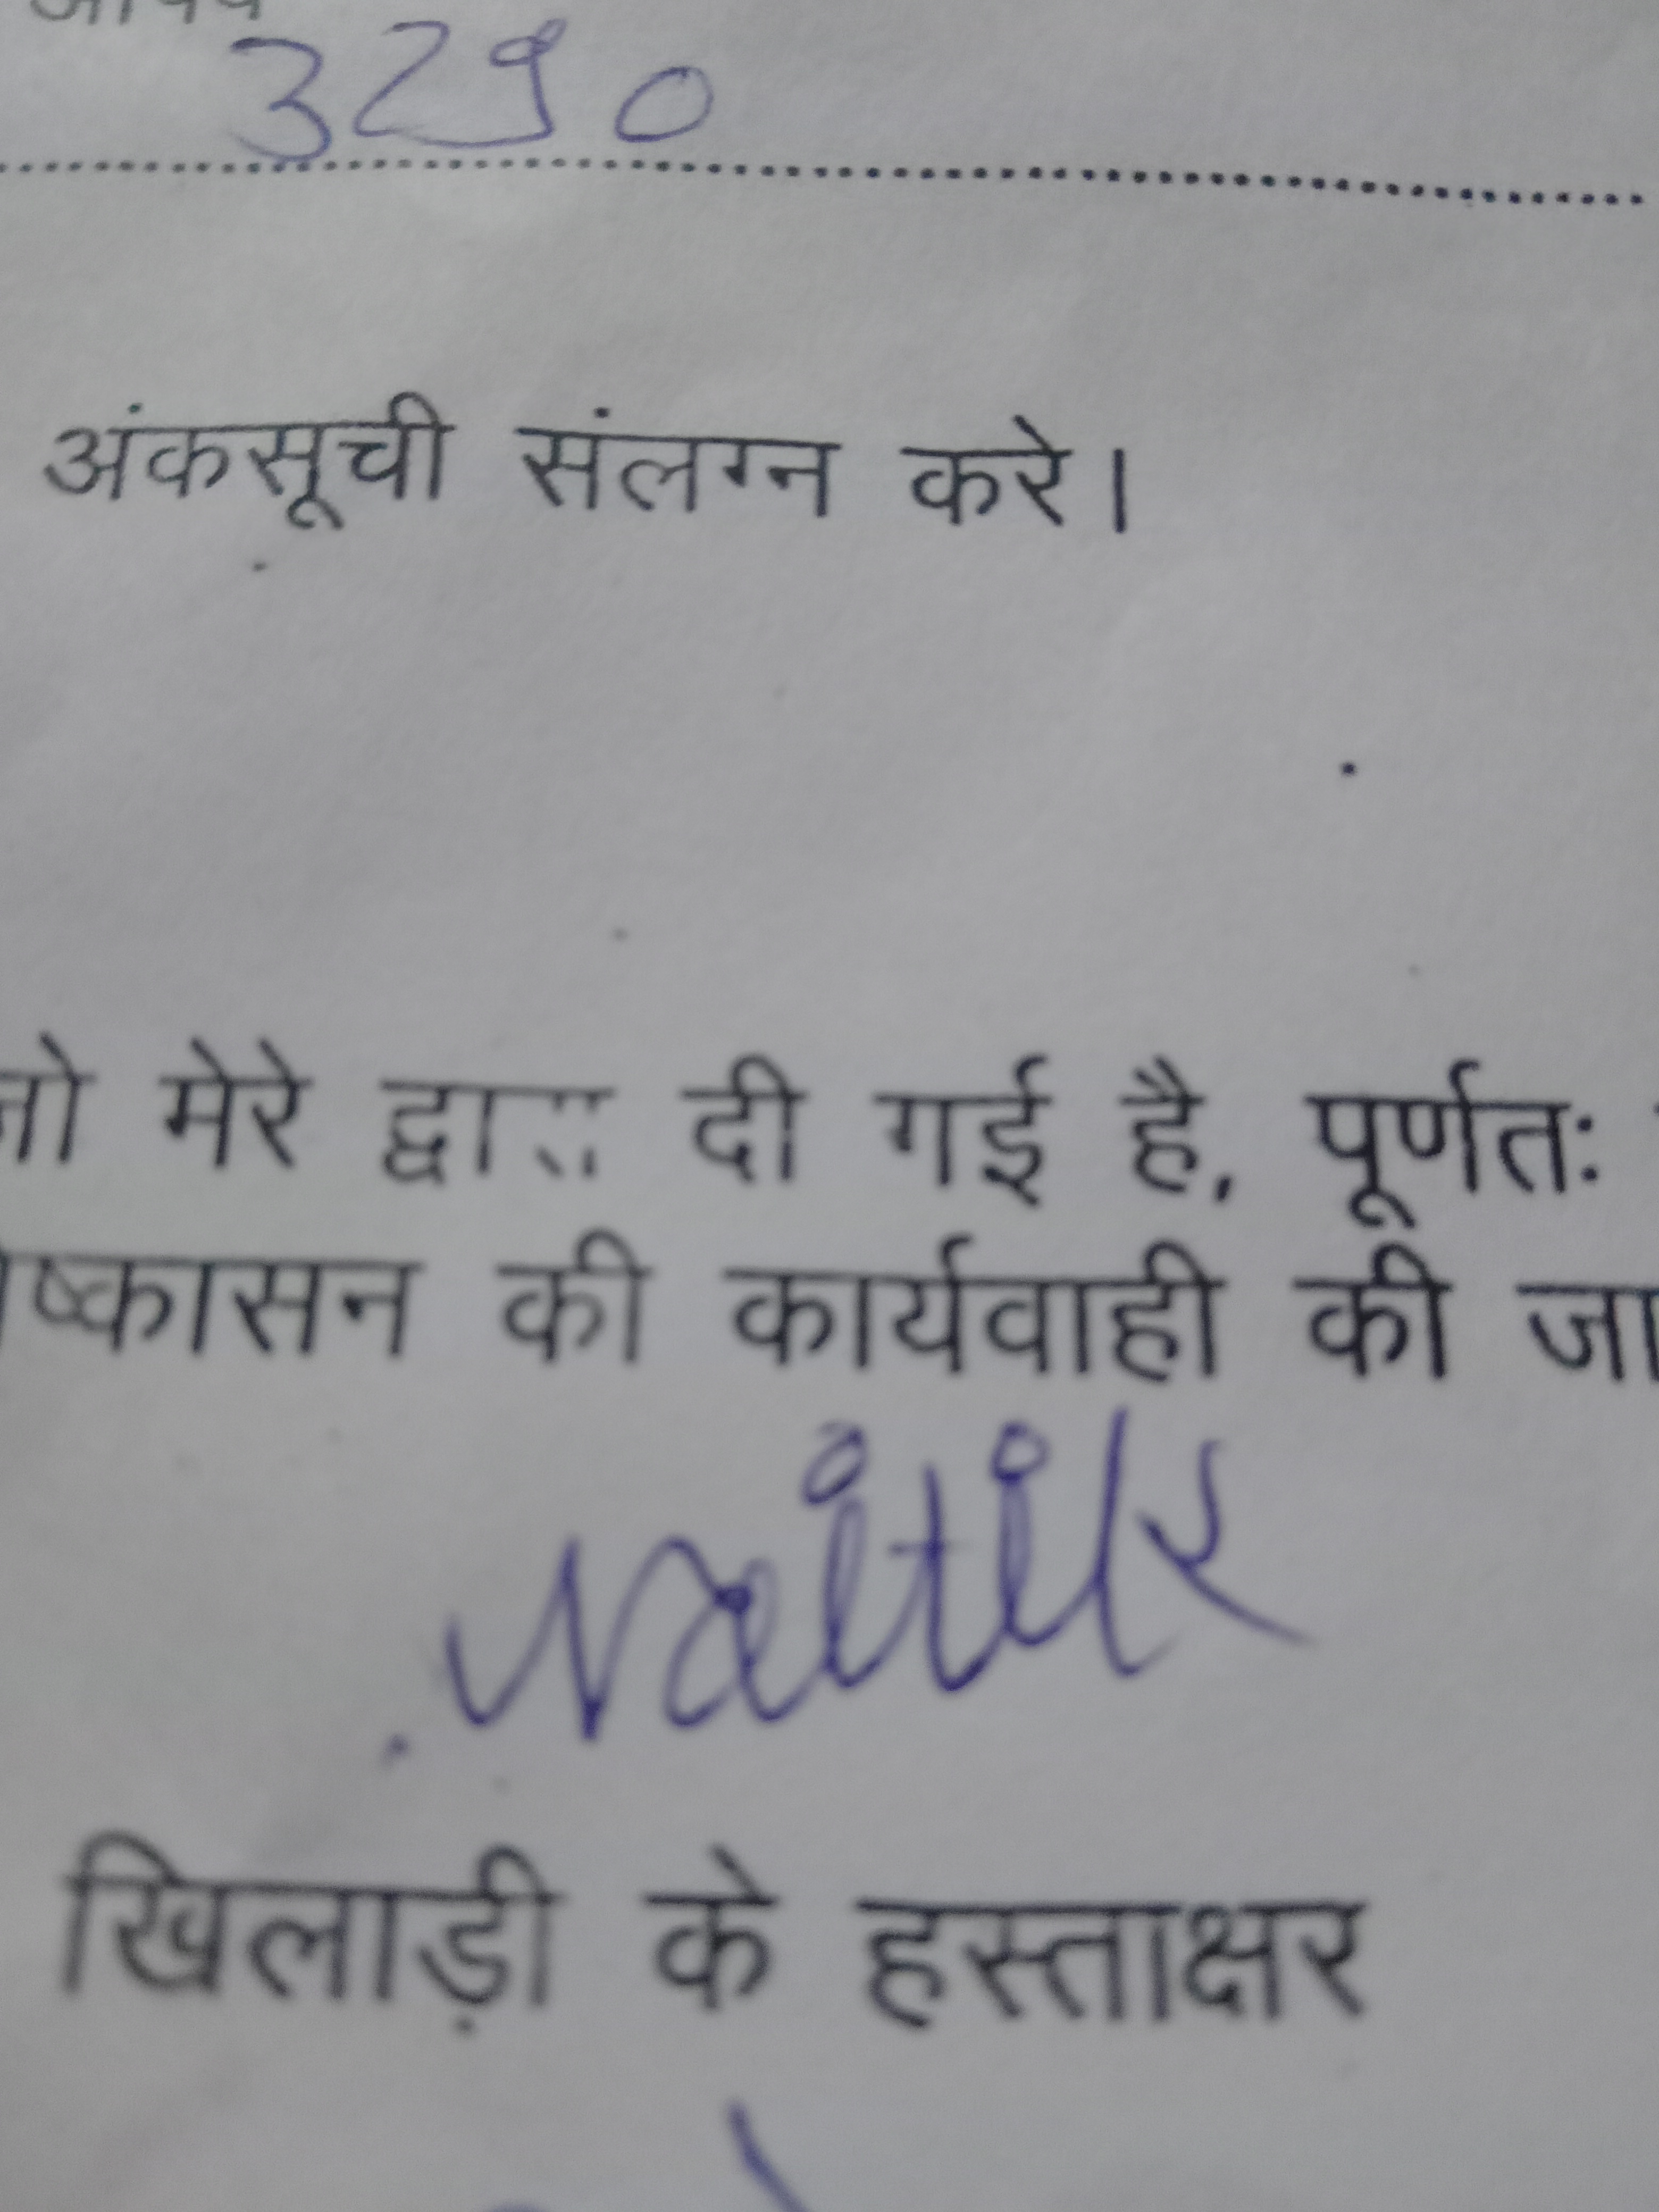 3290
अंकसूची संलग्न करे।
जो मेरे द्वारा दी गई है, पूर्णतः
ष्कासन की कार्यवाही की जा
खिलाड़ी के हस्ताक्षर